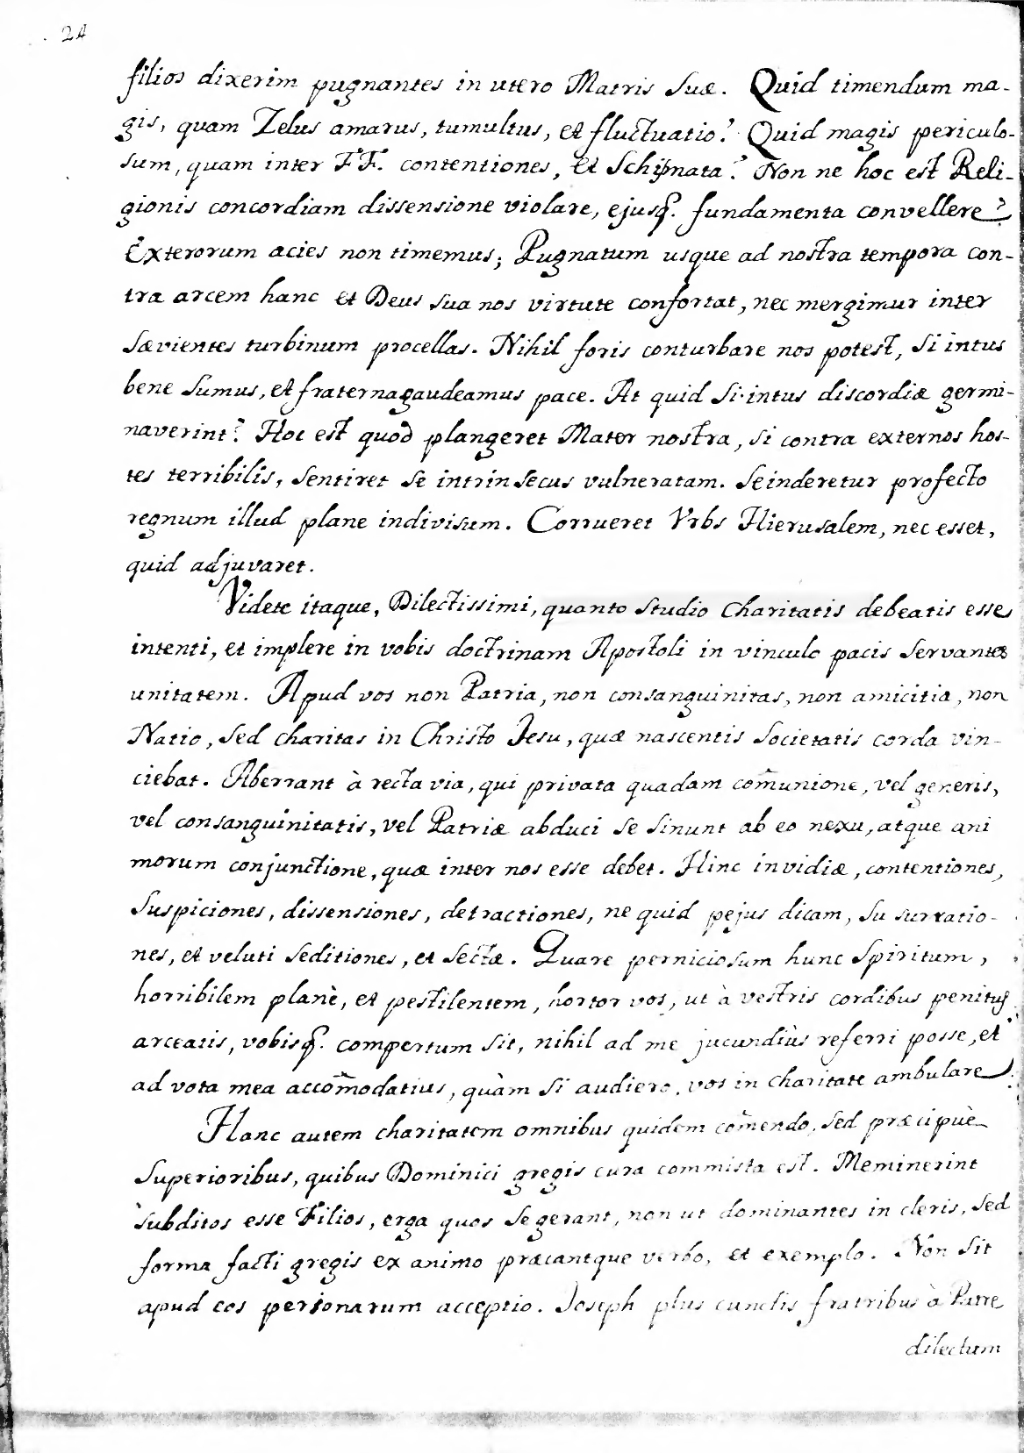 24
filios dixerim pugnantes in utero Matris suæ. Quid timendum ma-
gis, quam Zelus amarus, tumultus, et fluctuatio? Quid magis periculo-
sum, quam inter FF. contentiones, et Schismata? Non ne hoc est Reli-
gionis concordiam dissensione violare, ejusq. fundamenta convellere?
Exterorum acies non timemus; Pugnatum usque ad nostra tempora con-
tra arcem hanc et Deus sua nos virtute confortat, nec mergimur inter
sævientes turbinum procellas. Nihil foris conturbare nos potest, si intus
bene sumus, et fraterna gaudeamus pace. At quid si intus discordiæ germi-
naverint? Hoc est quod plangeret Mater nostra, si contra externos hos-
tes terribilis, sentiret se intrinsecus vulneratam. Seinderetur profecto
regnum illud plane indivisum. Corrueret Vrbs Hierusalem, nec esset,
quid adjuvaret.
Videte itaque, Dilectissimi, quanto studio charitatis debeatis esse
intenti, et implere in vobis doctrinam Apostoli in vinculo pacis servantes
unitatem. Apud vos non Patria, non consanguinitas, non amicitia, non
Natio, sed charitas in Christo Jesu, quæ nascentis Societatis corda vin-
ciebat. Aberrant à recta via, qui privata quadam com̃unione, vel generis,
vel consanguinitatis, vel Patriæ abduci se sinunt ab eo nexu, atque ani
morum conjunctione, quæ inter nos esse debet. Hinc invidiæ, contentiones,
suspiciones, dissensiones, detractiones, ne quid pejus dicam, susurratio-
nes, et veluti seditiones, et sectæ. Quare perniciosum hunc Spiritum,
horribilem planè, et pestilentem, hortor vos, ut à vestris cordibus penitus
arceatis, vobisq. compertum sit, nihil ad me jucundiùs referri posse, et
ad vota mea accom̃odatius, quàm si audiero, vos in charitate ambulare
Hanc autem charitatem omnibus quidem com̃endo, sed præcipuè
Superioribus, quibus Dominici gregis cura commista est. Meminerint
subditos esse Filios, erga quos se gerant, non ut dominantes in cleris, sed
forma facti gregis ex animo præcantque verbo, et exemplo. Non sit
apud eos personarum acceptio. Joseph plus cunctis fratribus à Patre
dilectum